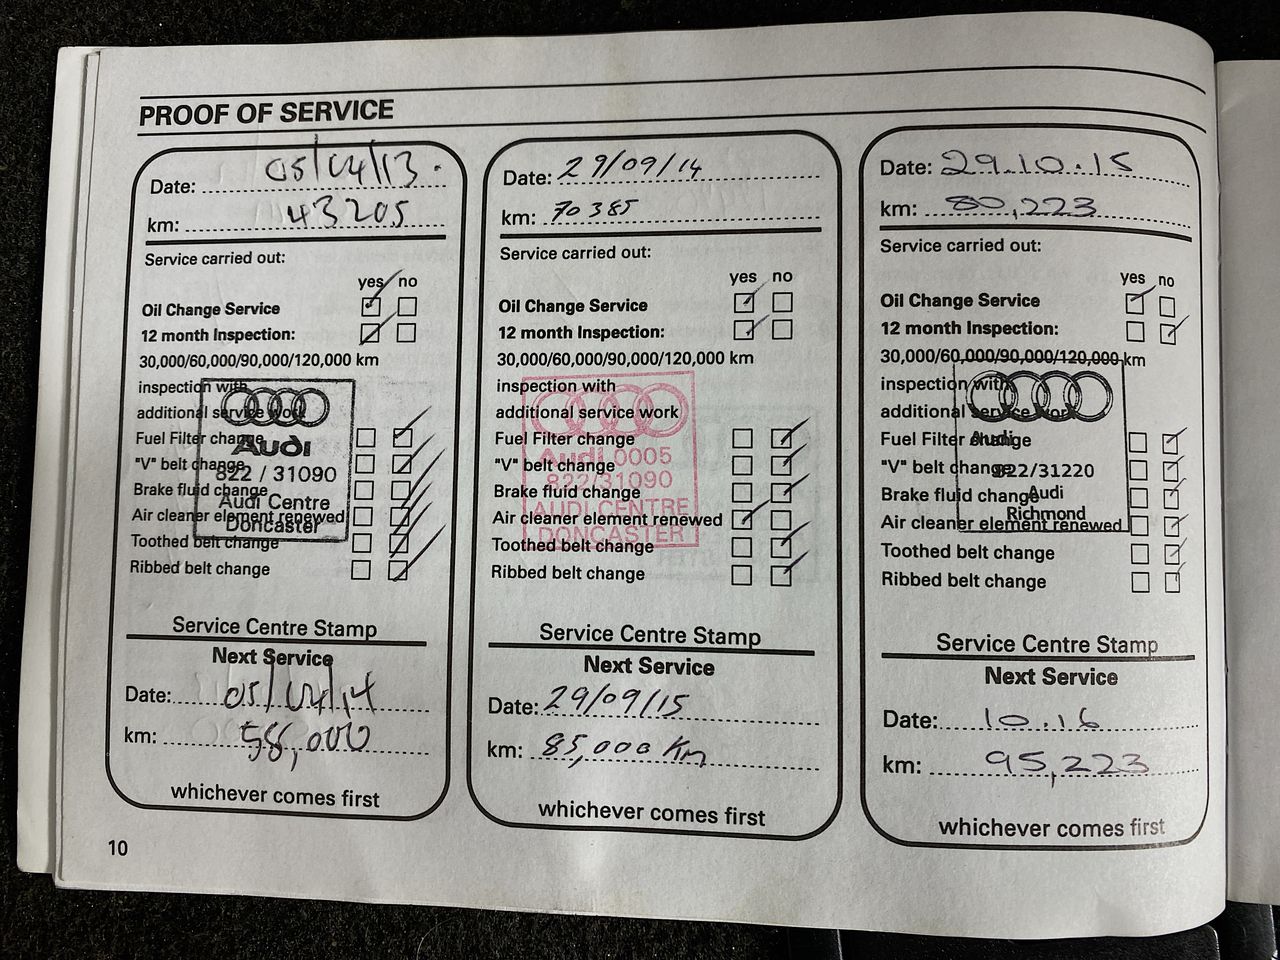 PROOF OF SERVICE
Date: 05/04/13.
km: 43205
Service carried out:
yes no
Oil Change Service
12 month Inspection:
30,000/60,000/90,000/120,000 km
inspection with
additional service work
Fuel Filter change
"V" belt change
Brake fluid change
Air cleaner element renewed
Toothed belt change
Ribbed belt change
Audi
822 / 31090
Audi Centre
Doncaster
Service Centre Stamp
Next Service
Date: 05/04/14
km: 58,000
whichever comes first
Date: 29/09/14
km: 70385
Service carried out:
yes no
Oil Change Service
12 month Inspection:
30,000/60,000/90,000/120,000 km
inspection with
additional service work
Fuel Filter change
"V" belt change
Brake fluid change
Air cleaner element renewed
Toothed belt change
Ribbed belt change
Audi 0005
822/31090
AUDI CENTRE
DONCASTER
Service Centre Stamp
Next Service
Date: 29/09/15
km: 85,000 Km
whichever comes first
Date: 29.10.15
km: 80,223
Service carried out:
yes no
Oil Change Service
12 month Inspection:
30,000/60,000/90,000/120,000 km
inspection with
additional service work
Fuel Filter change
"V" belt change
Brake fluid change
Air cleaner element renewed
Toothed belt change
Ribbed belt change
Audi
822/31220
Audi
Richmond
Service Centre Stamp
Next Service
Date: 10.16
km: 95,223
whichever comes first
10